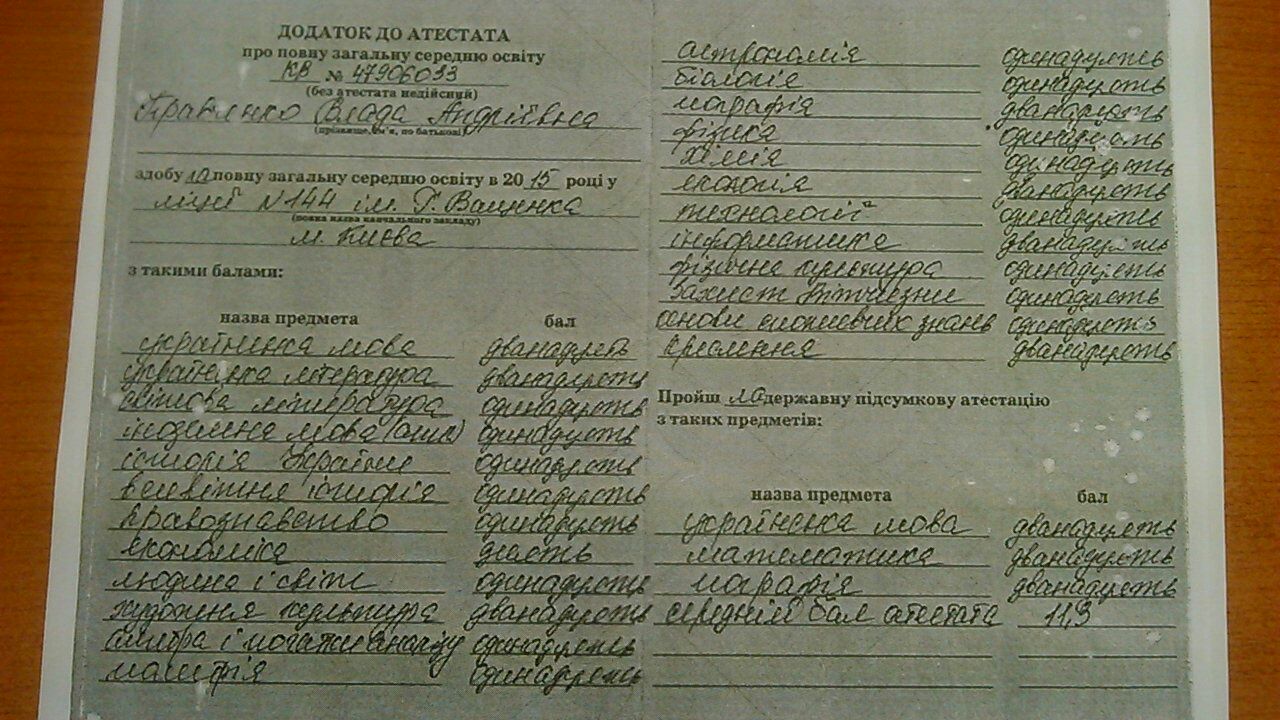 ДОДАТОК ДО АТЕСТАТА
про повну загальну середню освіту
КВ № 47906033
(без атестата недійсний)
Влада Андріївна
(прізвище, ім'я, по батькові)
здобула повну загальну середню освіту в 2015 році у
ліцеї №144 ім. Г. Ващенка
(повна назва навчального закладу)
м. Києва
з такими балами:
назва предмета бал
українська мова дванадцять
українська література дванадцять
світова література одинадцять
іноземна мова (англ) одинадцять
історія України одинадцять
всесвітня історія одинадцять
правознавство одинадцять
економіка десять
людина і світ одинадцять
художня культура дванадцять
алгебра і початки аналізу одинадцять
геометрія одинадцять
астрономія одинадцять
біологія одинадцять
географія дванадцять
фізика одинадцять
хімія одинадцять
екологія дванадцять
технології одинадцять
інформатика дванадцять
фізична культура одинадцять
захист Вітчизни одинадцять
основи споживчих знань одинадцять
креслення дванадцять
Пройшла державну підсумкову атестацію
з таких предметів:
назва предмета бал
українська мова дванадцять
математика дванадцять
географія дванадцять
середній бал атестата 11,3